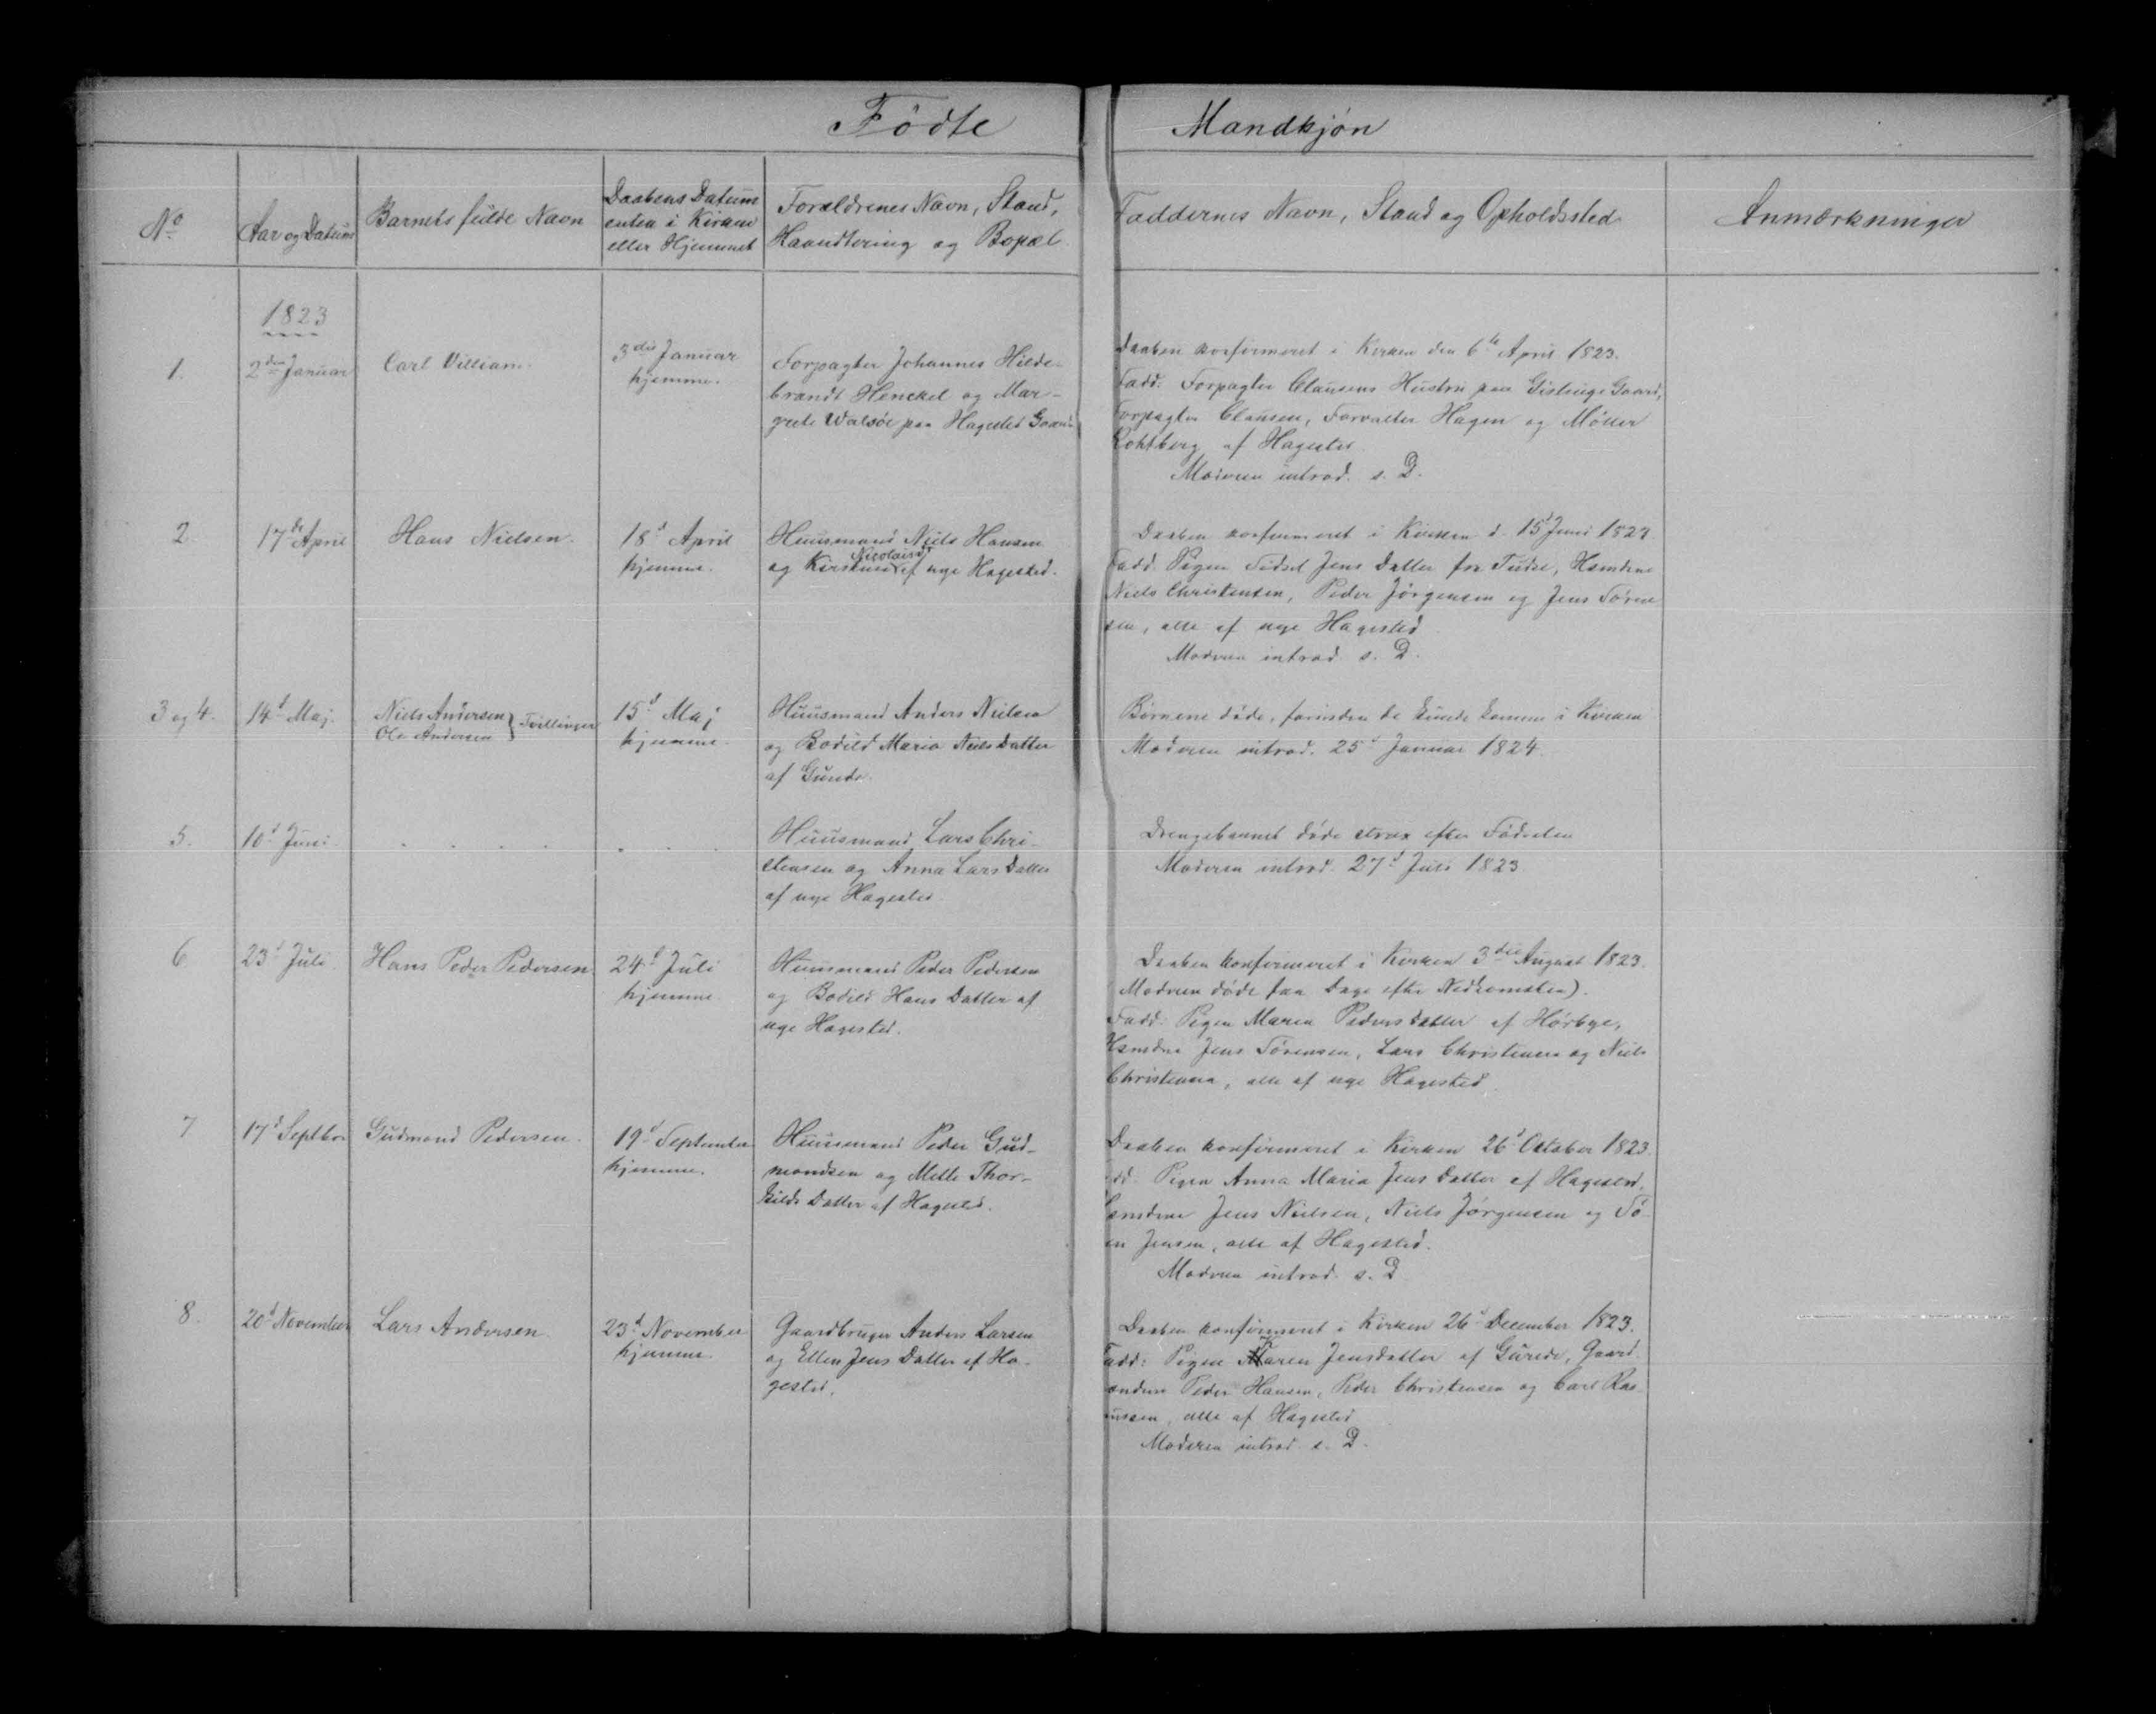 Födte
Mandkjön
No
Aar og Datum
Barnets fulde Navn
Daabens Datum
enten i Kirken
eller Hjemmet
Forældrenes Navn, Stand,
Haandtering og Bopæl.
Faddernes Navn, Stand og Opholdssted
Anmærkninger
1823
1.
2den Januar
Carl Villiam.
3die Januar
hjemme.
Forpagter Johannes Hilde-
brandt Henckel og Mar-
grete Walsöe paa Hagested Gaard
Daaben konfirmeret i Kirken den 6te April 1823.
Fadd: Forpagter Clausens Hustru paa Gislinge Gaard,
Forpagter Clausen, Forvalter Hagen og Möller
af Hagested
Moderen introd. s. D.
2
17de April
Hans Nielsen.
18d April
hjemme.
Huusmand Niels Hansen
Nicolaisdr
og Kirstine af nye Hagested.
Daaben konfirmeret i Kirken d. 15d Juni
Fadd. Pigen Sidsel Jens Datter fra Tudse, Hsmdene
Niels Christensen, Peder Jörgensen og Jens Sören
sen, alle af nye Hagested
Moderen introd. s. D.
3 og 4.
14d Maj.
Niels Andersen
Ole Andersen } Tvillinger
15d Maj
hjemme.
Huusmand Anders Nielsen
og Bodild Maria Niels Datter
af Gurede.
Börnene döde, forinden de kunde komme i Kirken
Moderen introd. 25d Januar 1824.
5.
10d Juni
. . . .
. . .
Huusmand Lars Chri-
stensen og Anna Lars Datter
af nye Hagested
Drengebarnet döde strax efter Födselen
Moderen introd. 27d Juli 1823
6
23d Juli
Hans Peder Pedersen
24d Juli
hjemme.
Huusmand Peder Pedersen
og Bodild Hans Datter af
nye Hagested.
Daaben konfirmeret i Kirken 3die August 1823.
(Moderen döde faa Dage efter Nedkomsten).
Fadd: Pigen Maren Peders Datter af Hörbye,
Hsmdne Jens Sörensen, Lars Christensen og Niels
Christensen, alle af nye Hagested
7
17d Septbr
Gudmand Pedersen.
19d September
hjemme.
Huusmand Peder Gud-
mandsen og Mette Thor-
kilds Datter af Hagested.
Daaben konfirmeret i Kirken 26d Oktober 1823.
dd. Pigen Anna Maria Jens Datter af Hagested,
smdene Jens Nielsen, Niels Jörgensen og Sö-
en Jensen, alle af Hagested.
Moderen introd. s. D
8.
20d November
Lars Andersen
23d November
hjemme.
Gaardbruger Anders Larsen
og Ellen Jens Datter af Ha-
gested.
Daaben konfirmeret i Kirken 26d December 1823.
Fadd: Pigen Karen Jensdatter af Gurede, Gaard-
mændene Peder Hansen, Peder Christensen og Carl Ras-
mussen, alle af Hagested
Moderen introd. s. D.